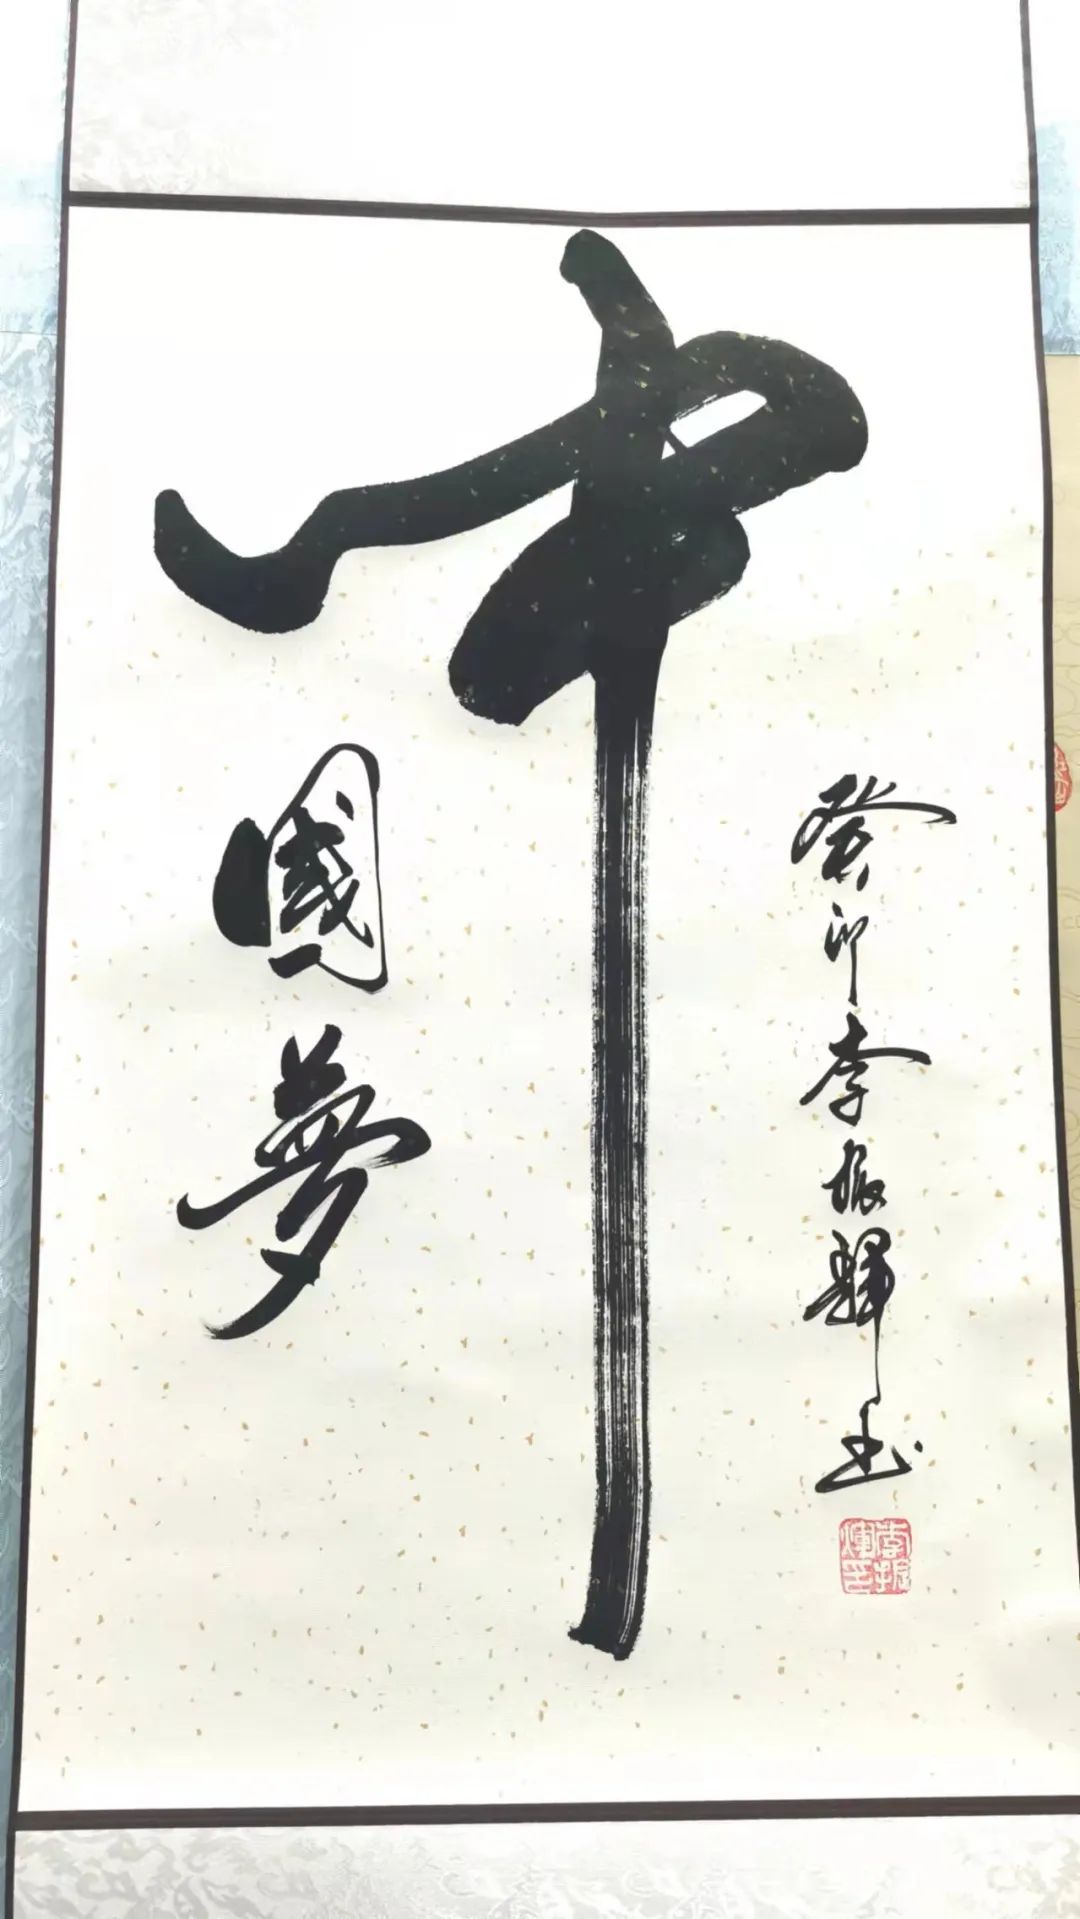 中
國夢
癸卯李振輝书
李振
煇印